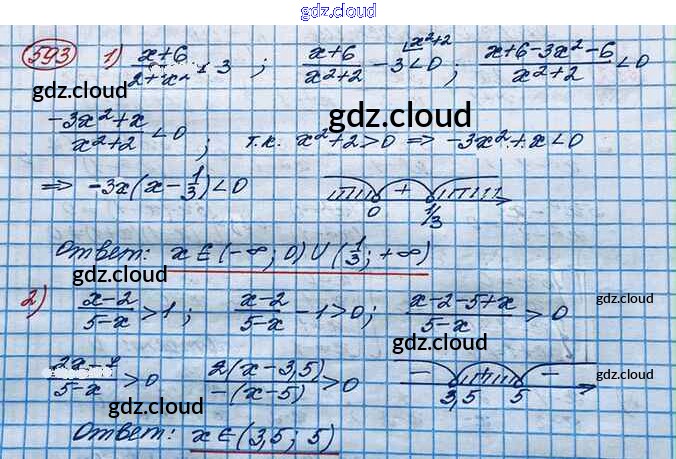 gdz.cloud
593 1) x+6 / 2+x² < 3 ; x+6 / x²+2 - 3 < 0 ; x+6-3x²-6 / x²+2 < 0
gdz.cloud
-3x²+x / x²+2 < 0 ; т.к. x²+2>0 ⇒ -3x²+x<0
⇒ -3x(x-1/3)<0 + 0 1/3
Ответ: x∈(-∞; 0)∪(1/3; +∞)
gdz.cloud
2) x-2 / 5-x > 1 ; x-2 / 5-x - 1 > 0 ; x-2-5+x / 5-x > 0
gdz.cloud
5-x > 0 2(x-3,5) / -(x-5) > 0 - + - 3,5 5
gdz.cloud
Ответ: x∈(3,5; 5)